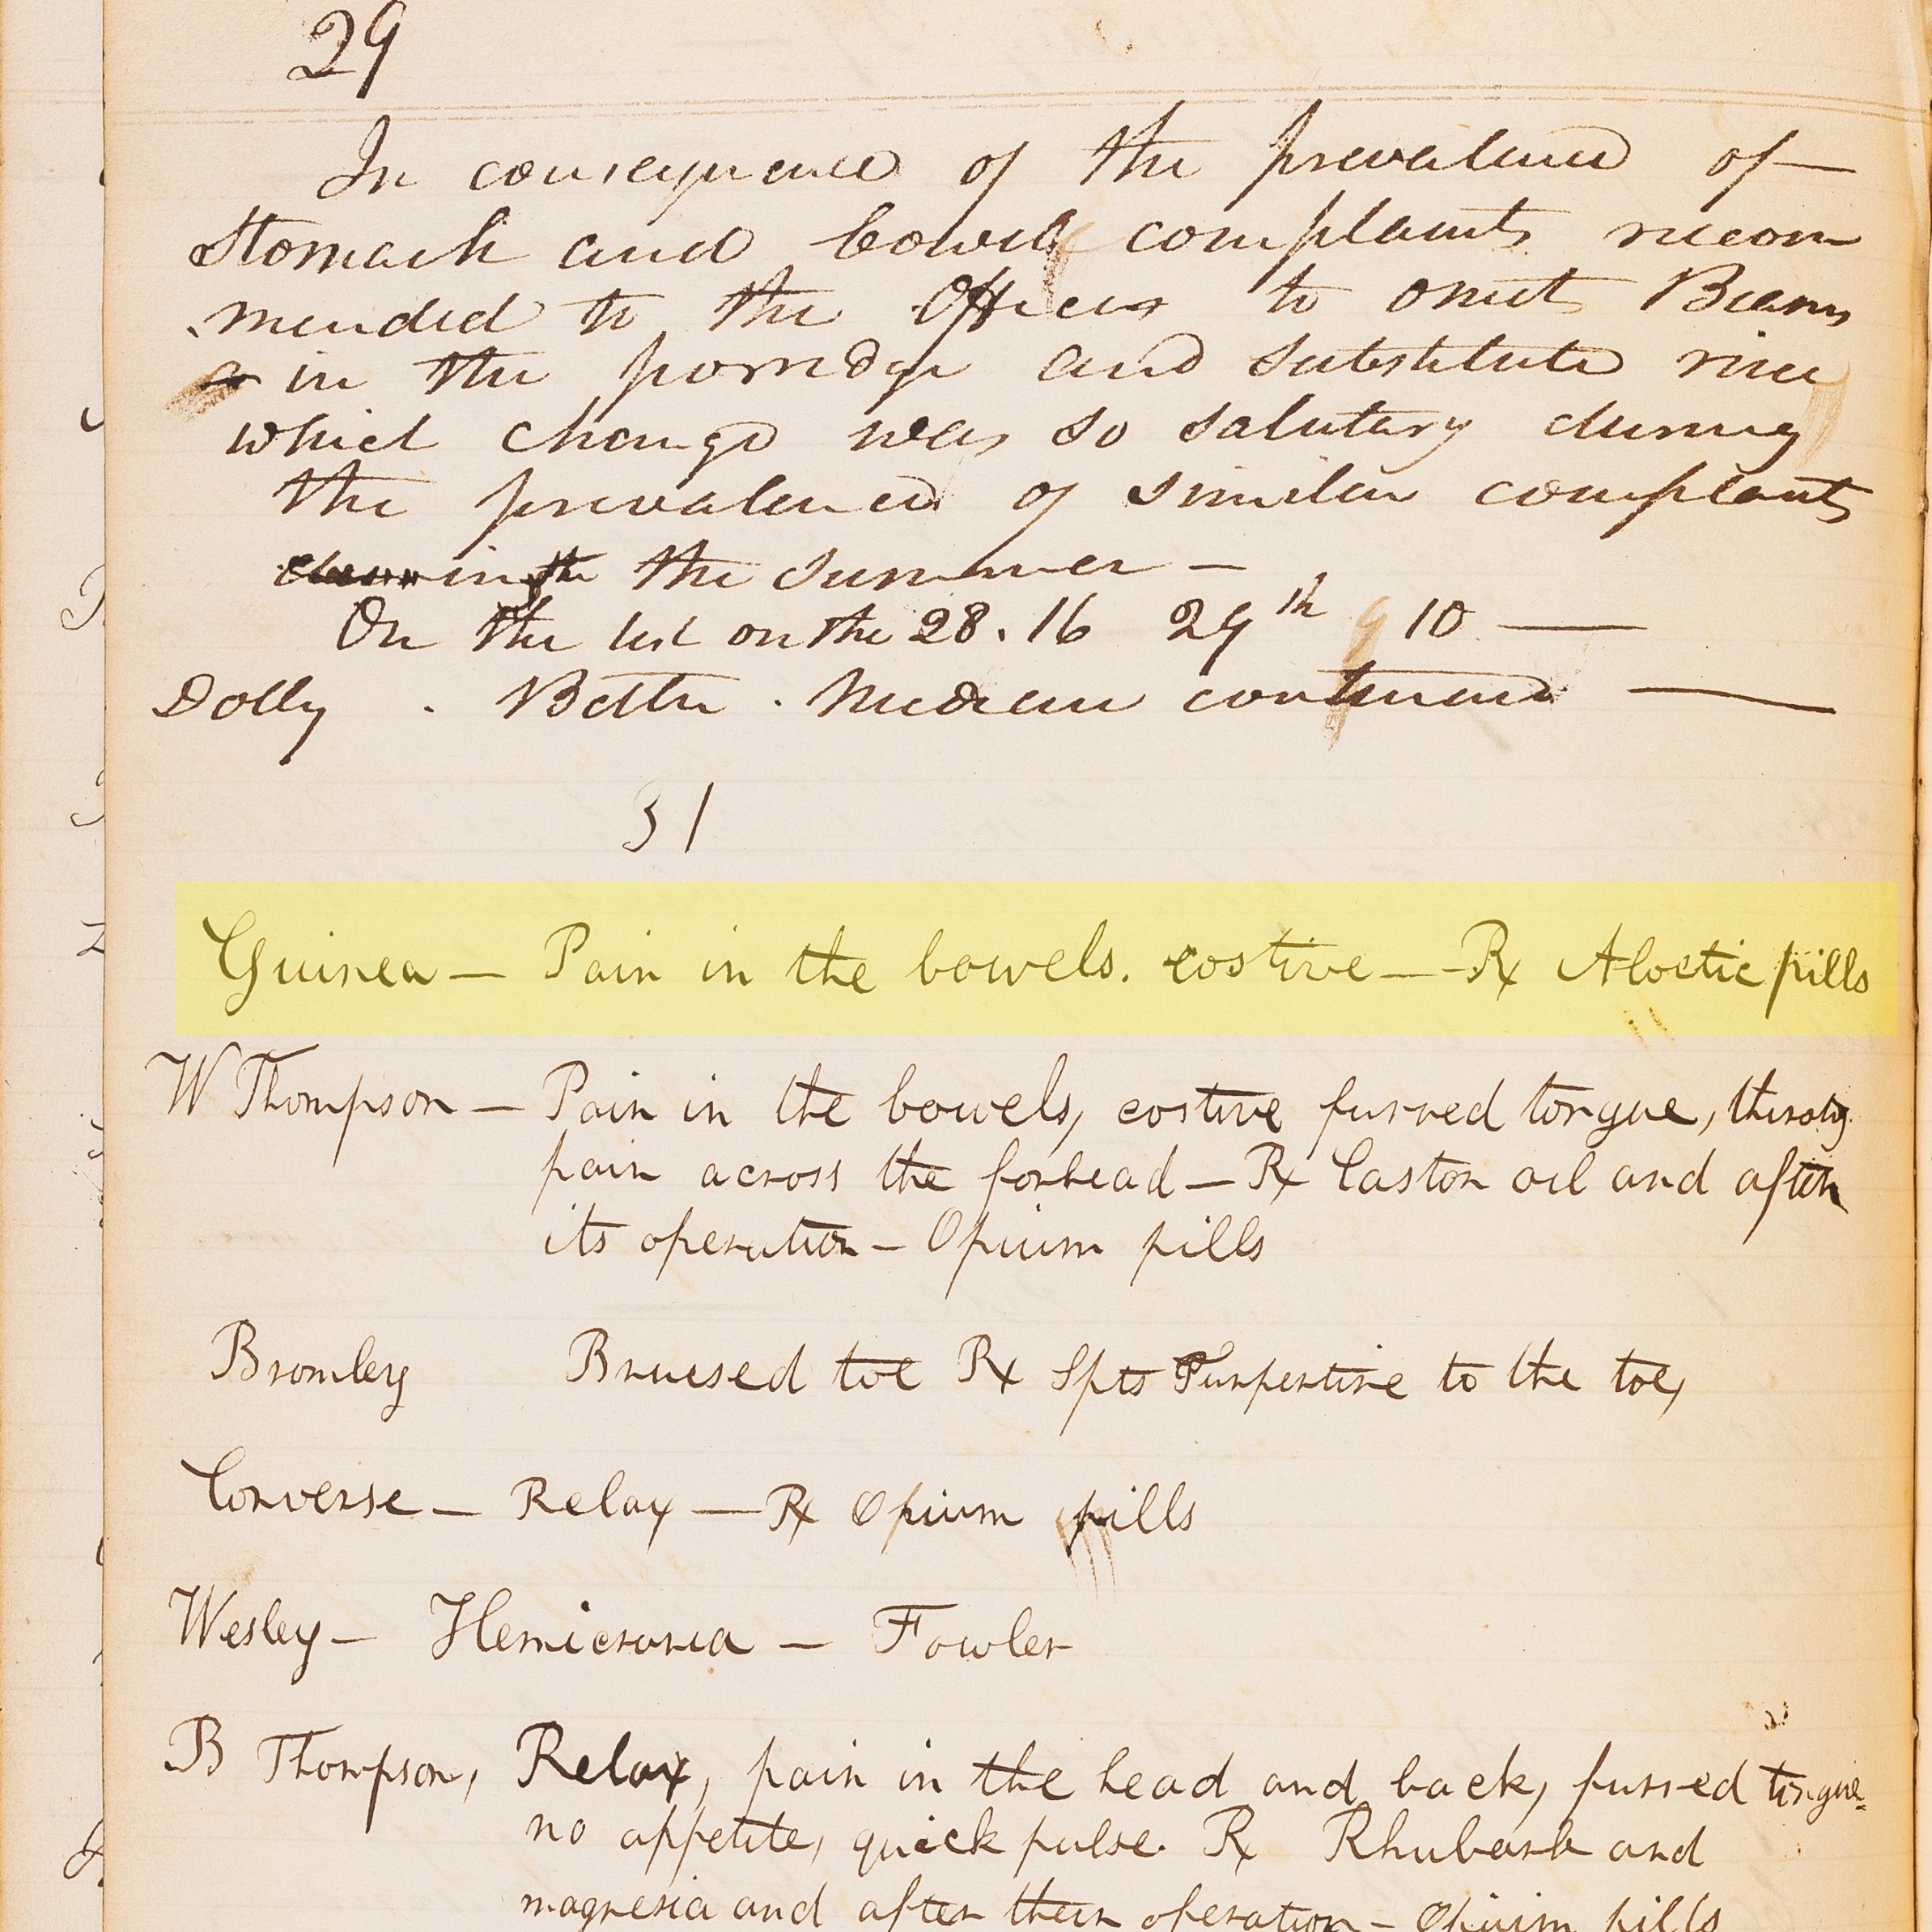 29
In consequence of the prevalence of
Stomach and bowel complaints recom
mended to the Officers to omit Beans
in the porridge and substitute rice
which change was so salutary during
the prevalence of similar complaints
in the summer —
On the list on the 28. 16 29th 10 —
Dolly . Better . Medicine continued —
31
Guinea — Pain in the bowels. costive — Rx Aloetic pills
W Thompson — Pain in the bowels, costive furred tongue, thirsty
pain across the forhead — Rx Castor oil and after
its operation — Opium pills
Bromley Bruesed toe Rx Spts Turpentine to the toe,
Converse — Relax — Rx Opium pills
Wesley — Hemicrania — Fowler
B Thompson, Relax, pain in the head and back, furred tongue
no appetite, quick pulse. Rx Rhubarb and
magnesia and after their operation — Opium pills